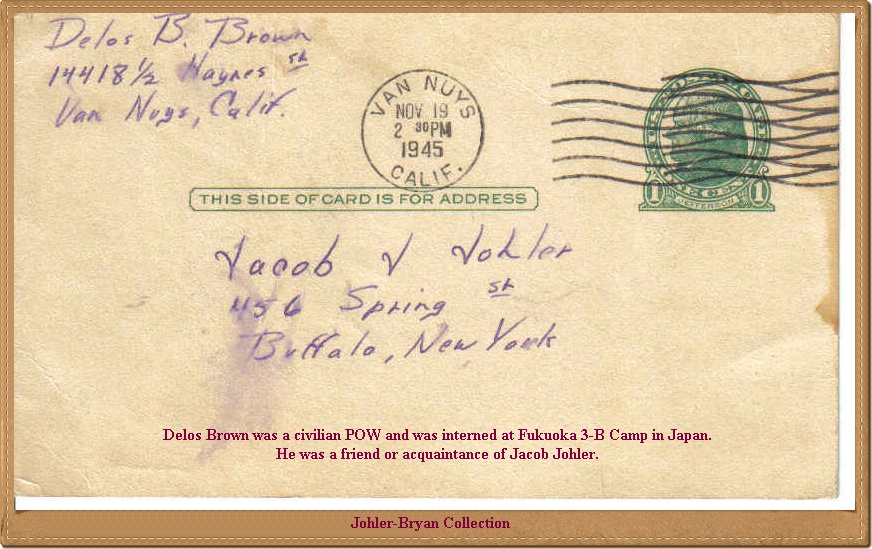 Delos B. Brown
14418½ Haynes St
Van Nuys, Calif.
VAN NUYS
NOV 19
2 30PM
1945
CALIF.
1 CENT 1
JEFFERSON
THIS SIDE OF CARD IS FOR ADDRESS
Jacob J Johler
456 Spring St
Buffalo, New York
Delos Brown was a civilian POW and was interned at Fukuoka 3-B Camp in Japan.
He was a friend or acquaintance of Jacob Johler.
Johler-Bryan Collection